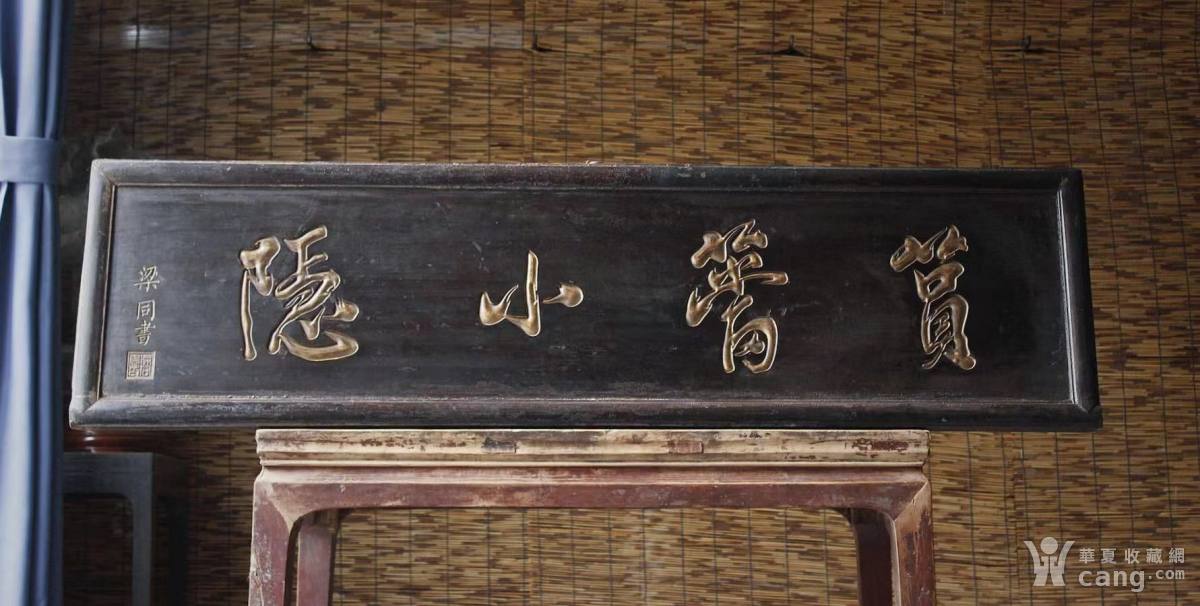 篔簹小隱
梁同書
華夏收藏網
cang.com